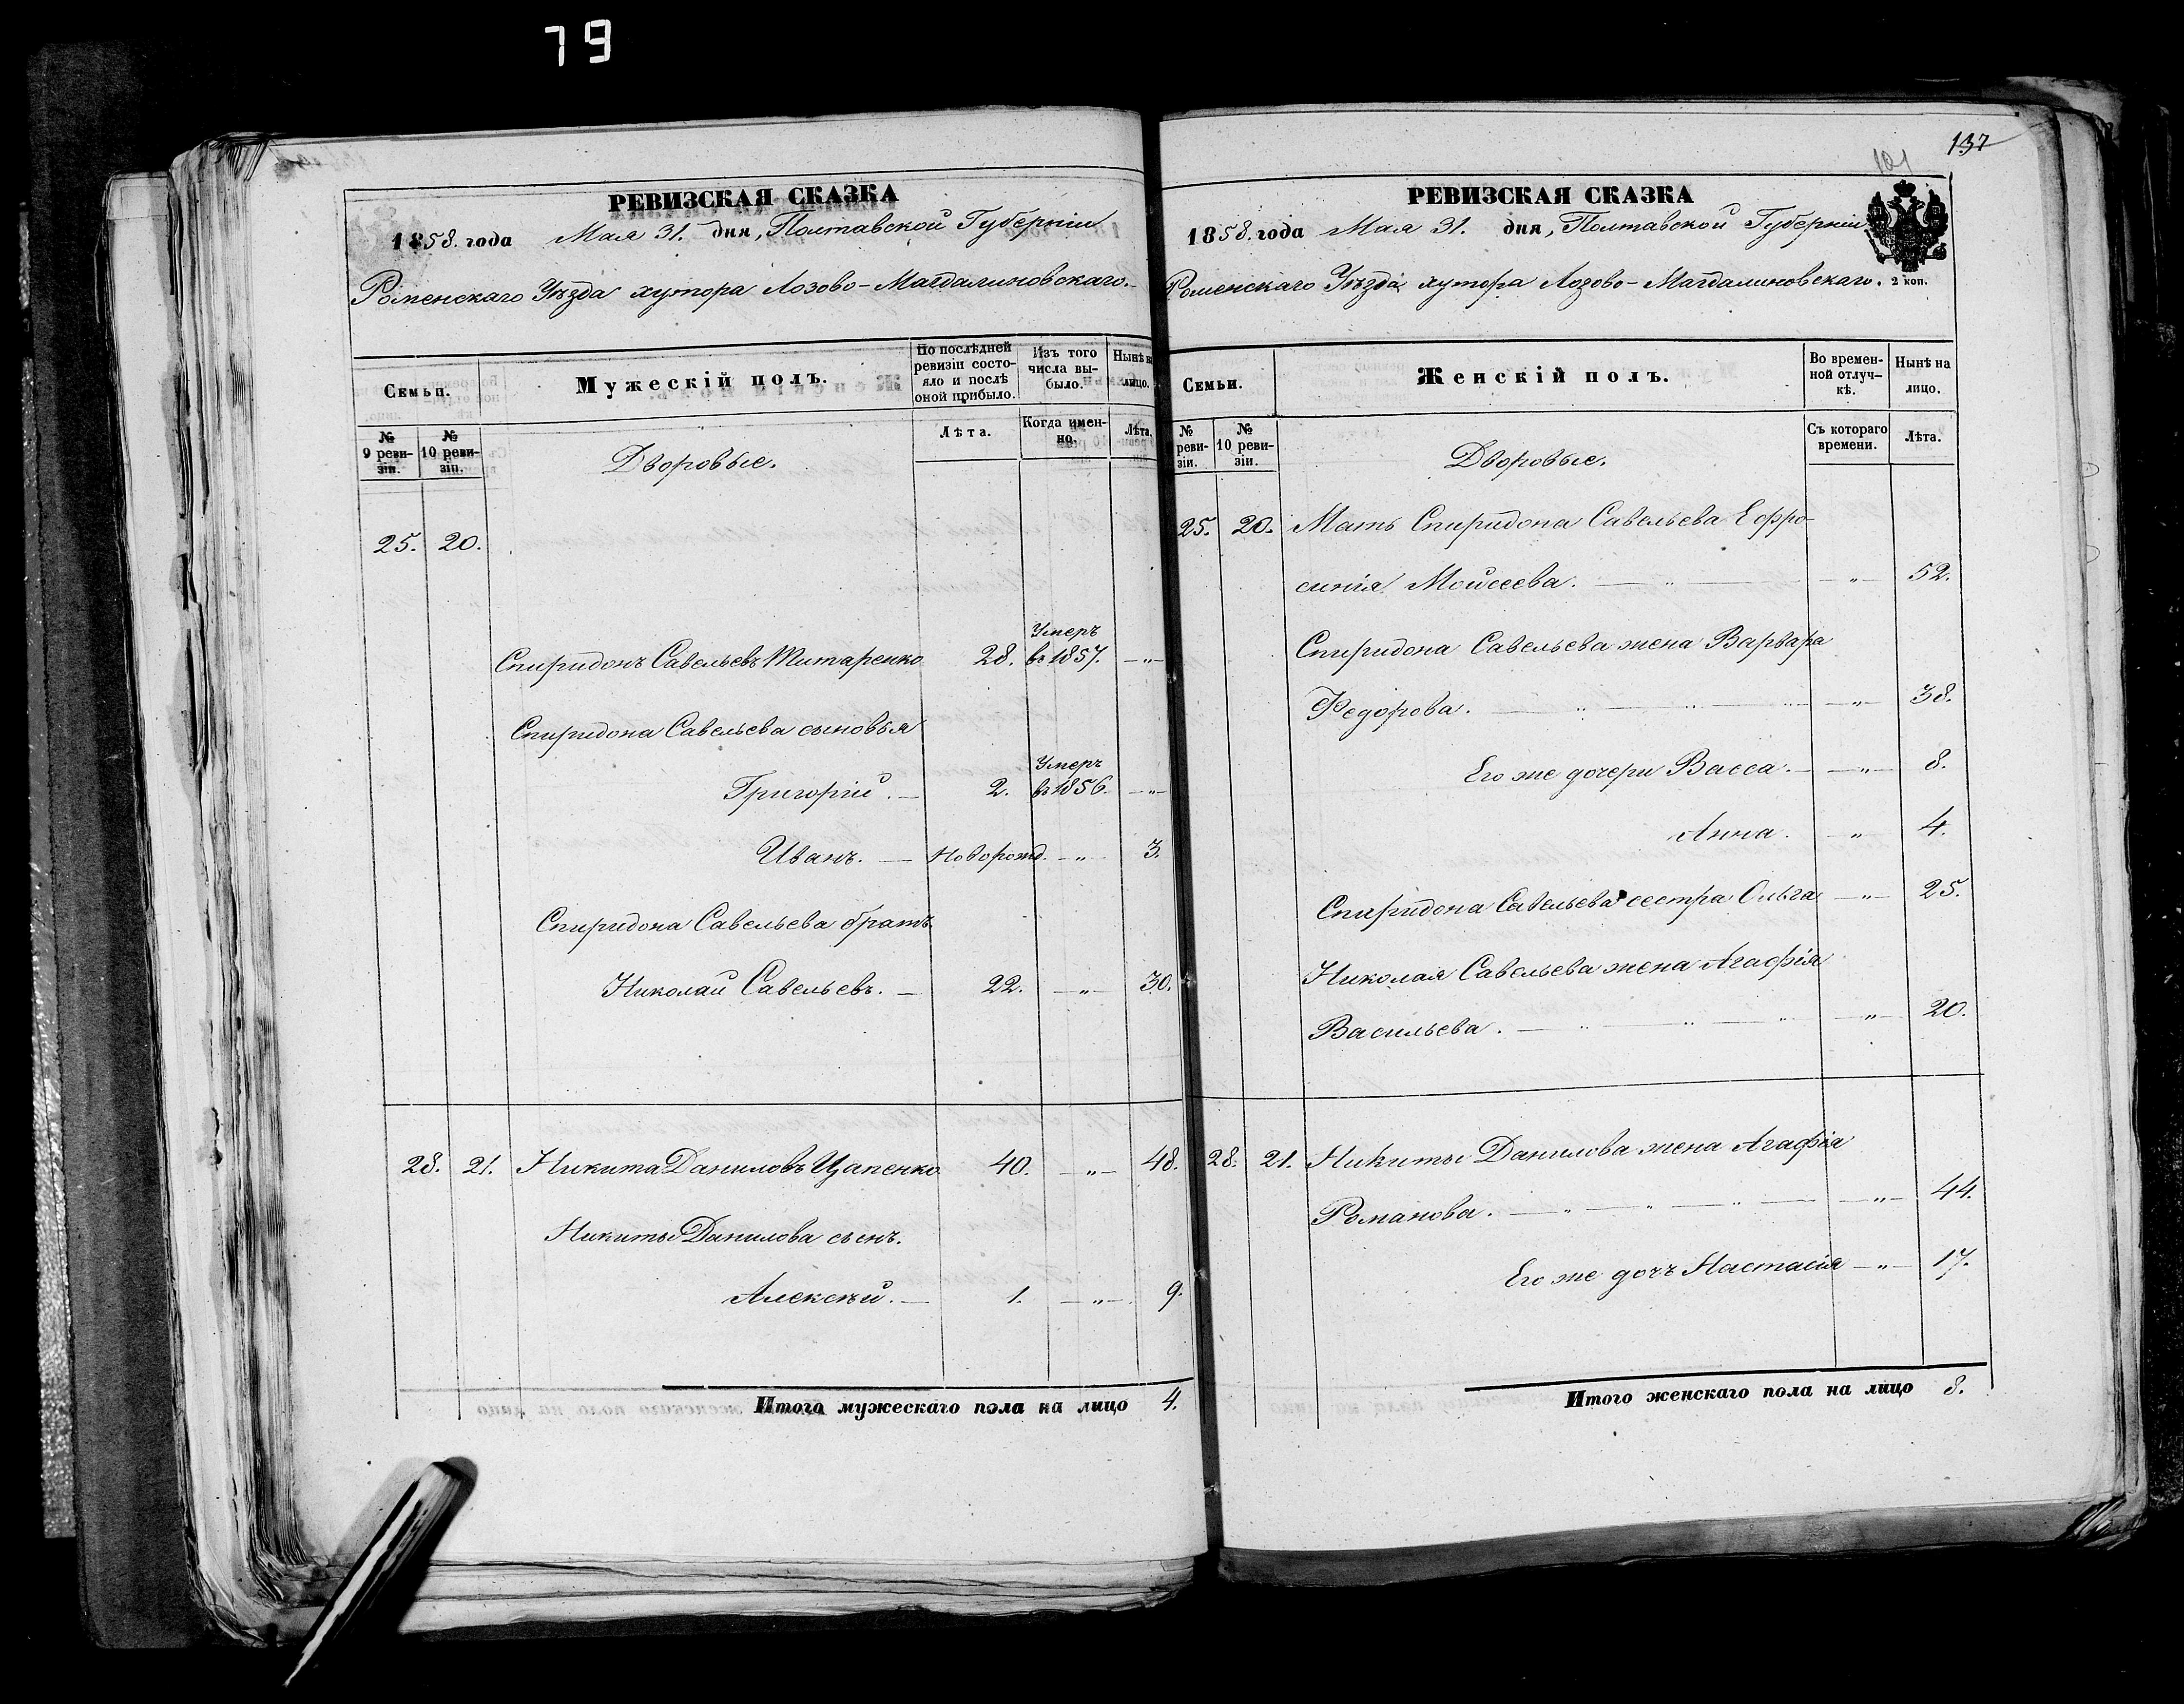 79
РЕВИЗСКАЯ СКАЗКА
1858. года Мая 31. дня, Полтавской Губерніи
Роменскаго Уѣзда хутора Лозово-Магдалиновскаго.
Семьи.
Мужескій полъ.
По послѣдней
ревизіи состо-
яло и послѣ
оной прибыло.
Изъ того
числа вы-
было.
Нынѣ на
лицо.
№
9 реви-
зіи.
№
10 реви-
зіи.
Дворовые.
Лѣта.
Когда имен-
но.
Лѣта.
25. 20.
Умеръ
Спиридонъ Савельевъ Титаренко 28. въ 1857. —"—
Спиридона Савельева сыновья
Умеръ
Григорій. — 2. въ 1856. —"—
Иванъ. — Новорожд. —"— 3.
Спиридона Савельева братъ
Николай Савельевъ. — 22. —"— 30.
28. 21. Никита Даниловъ Цапенко 40. —"— 48.
Никиты Данилова сынъ.
Алексѣй. — 1. —"— 9.
Итого мужескаго пола на лицо 4.
137
101
РЕВИЗСКАЯ СКАЗКА
1858. года Мая 31. дня, Полтавской Губерніи
Роменскаго Уѣзда хутора Лозово-Магдалиновскаго. 2 коп.
Семьи.
Женскій полъ.
Во времен-
ной отлуч-
кѣ.
Нынѣ на
лицо.
№
реви-
зіи.
№
10 реви-
зіи.
Дворовые.
Съ котораго
времени.
Лѣта.
25. 20. Мать Спиридона Савельева Ефро-
синія Моисеева. —"— —"— 52.
Спиридона Савельева жена Варвара
Федорова. —"—"—"— —"— 38.
Его же дочери Васса. — —"— 8.
Анна. " 4.
Спиридона Савельева сестра Ольга —"— 25.
Николая Савельева жена Агафія
Васильева. —"—"—"— —"— 20.
28. 21. Никиты Данилова жена Агафія
Романова. —"—"—"— —"— 44.
Его же дочь Настасія —"— 17.
Итого женскаго пола на лицо 8.